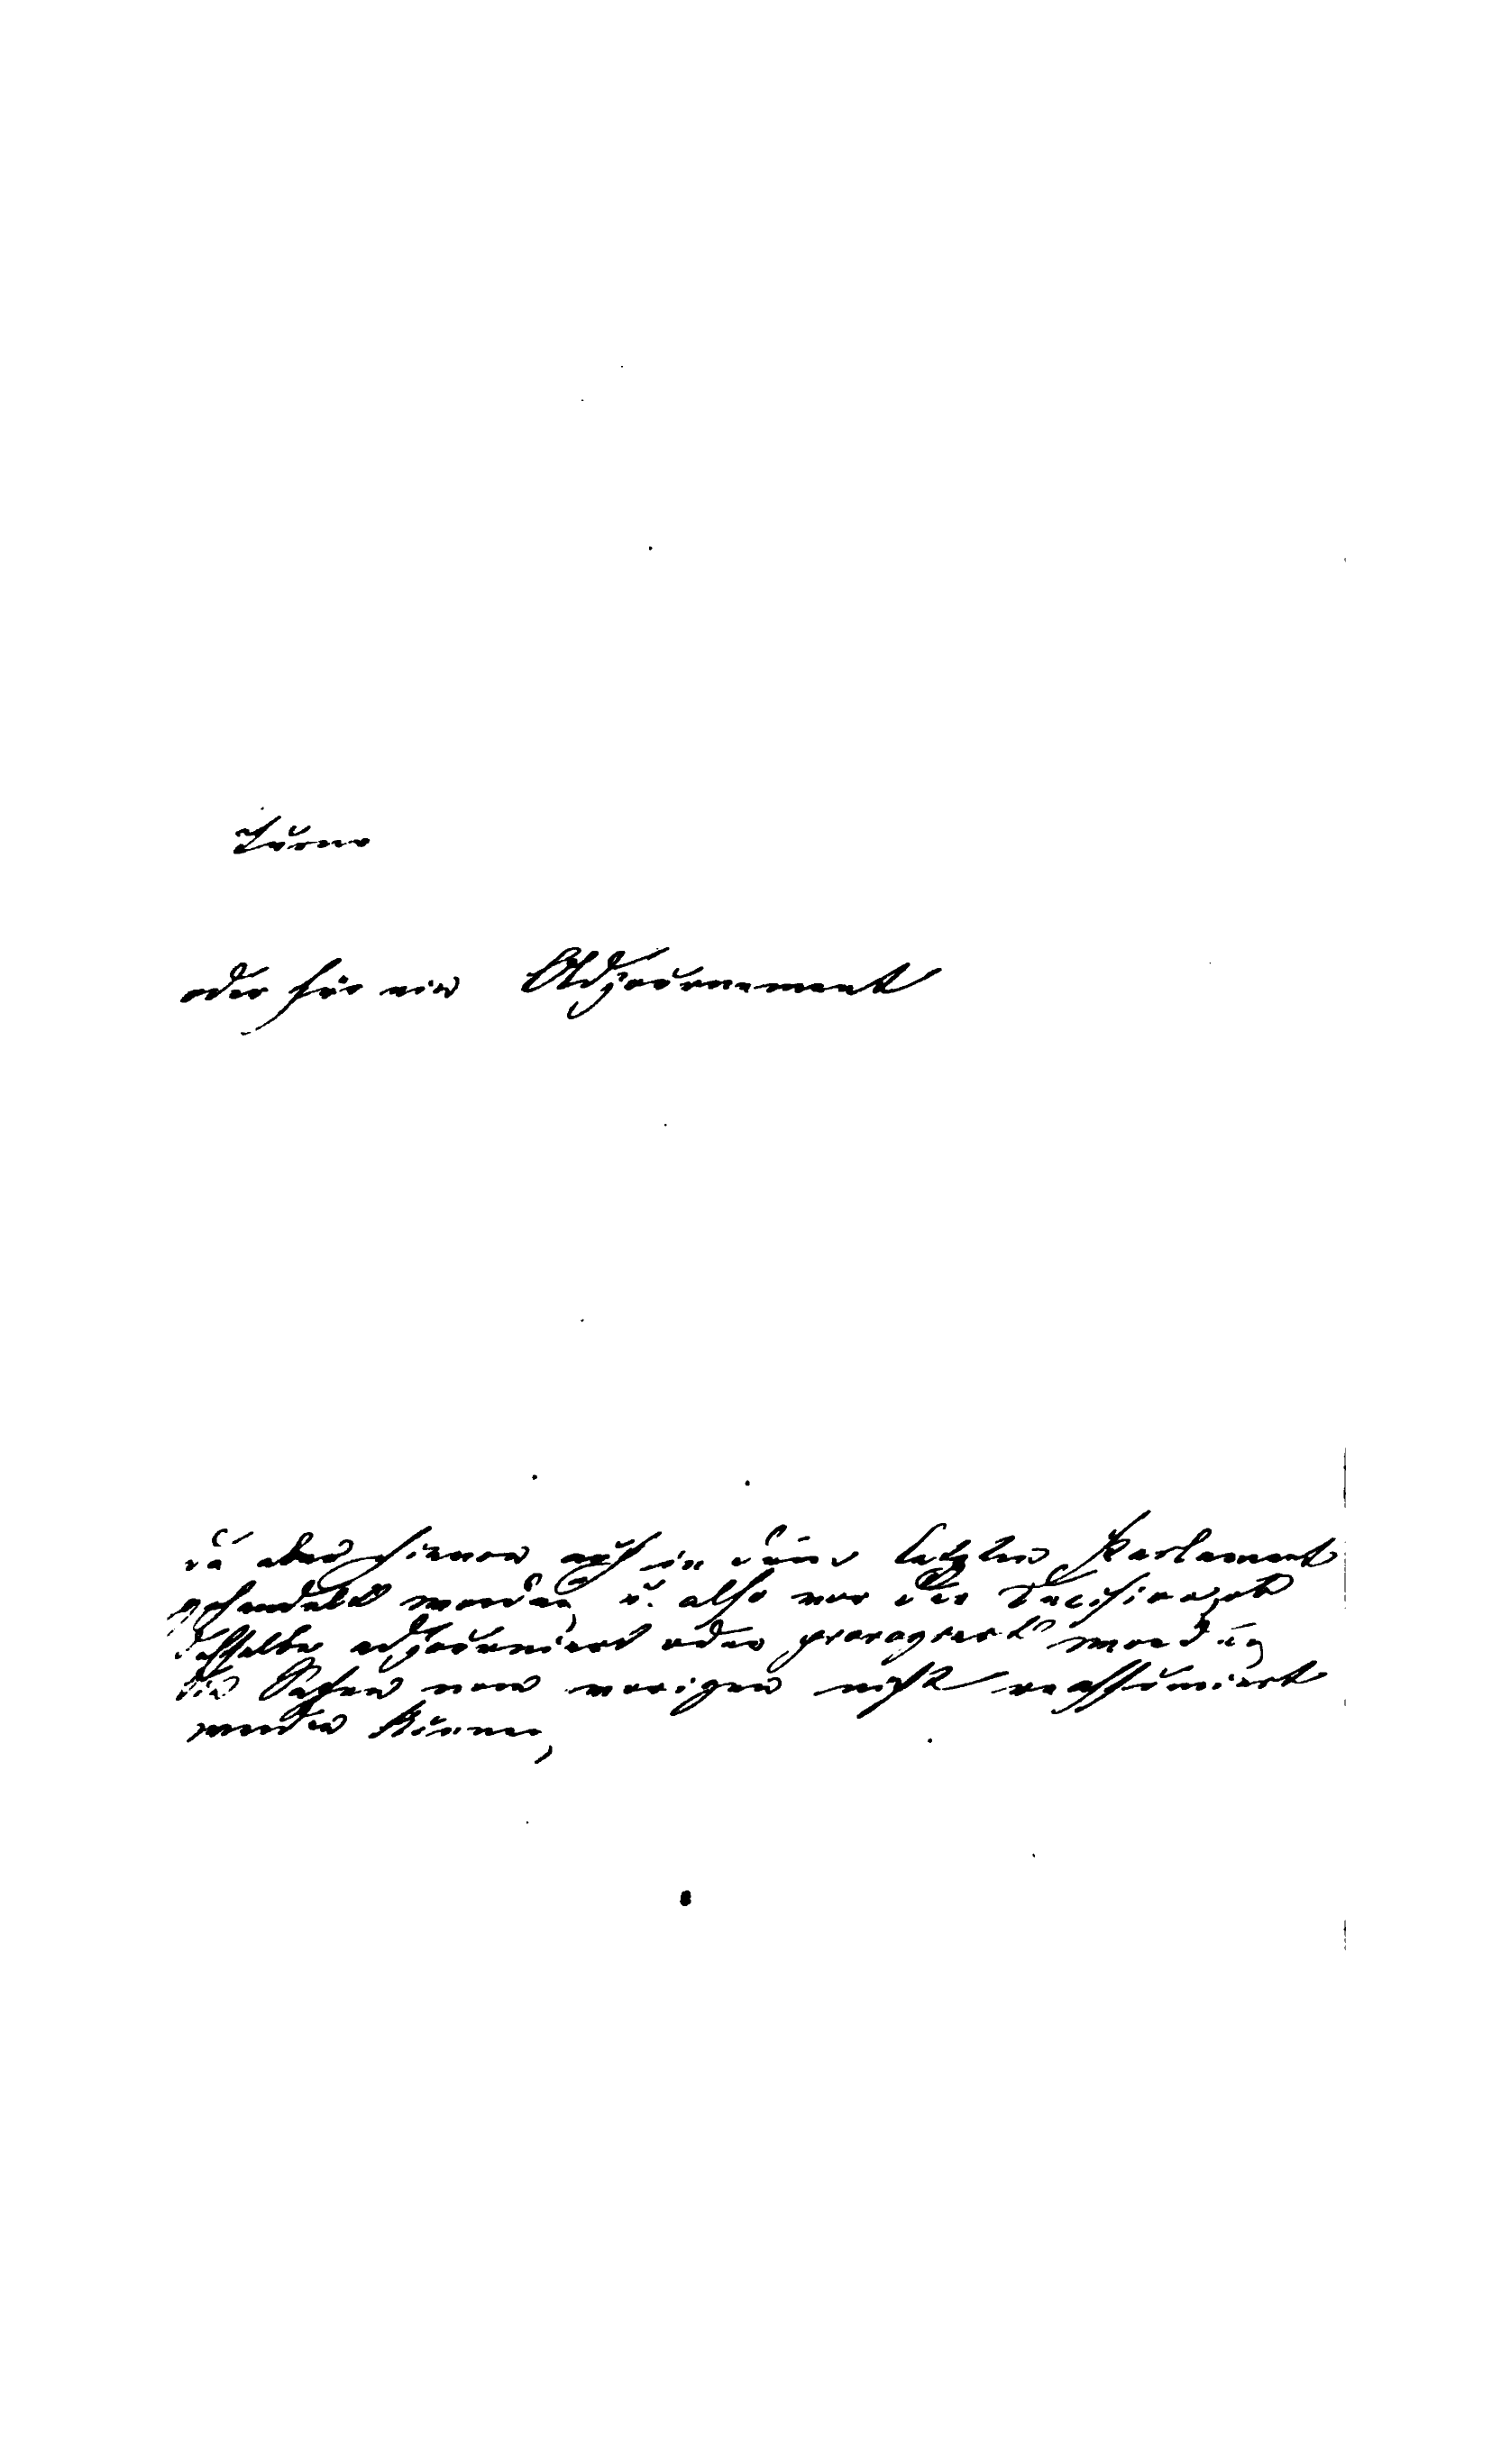 oder für ein Adjournement
da aber hievon auch in dem letzten Parlament
gehandelt worden u. also vor der Decision
dasselbe adjourniert oder prorogiert worden
die Sachen vom vorigen nicht reassumiert
werden können,